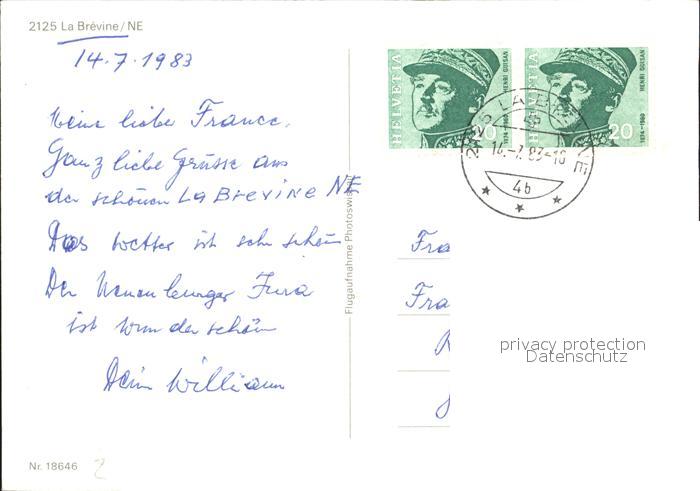 2125 La Brévine/NE
14.7.1983
Meine liebe France,
Ganz liebe Grüsse aus
der schönen LA BREVINE NE
Das Wetter ist sehr schön
Der Neuenburger Jura
ist wunderschön
Dein William
Nr. 18646
2
Flugaufnahme Photoswi
HELVETIA
HENRI GUISAN
1874-1960
20
HELVETIA
HENRI GUISAN
1874-1960
20
2125 LA BREVINE
14.-7.83-18
4b
Fra
Fra
privacy protection
Datenschutz